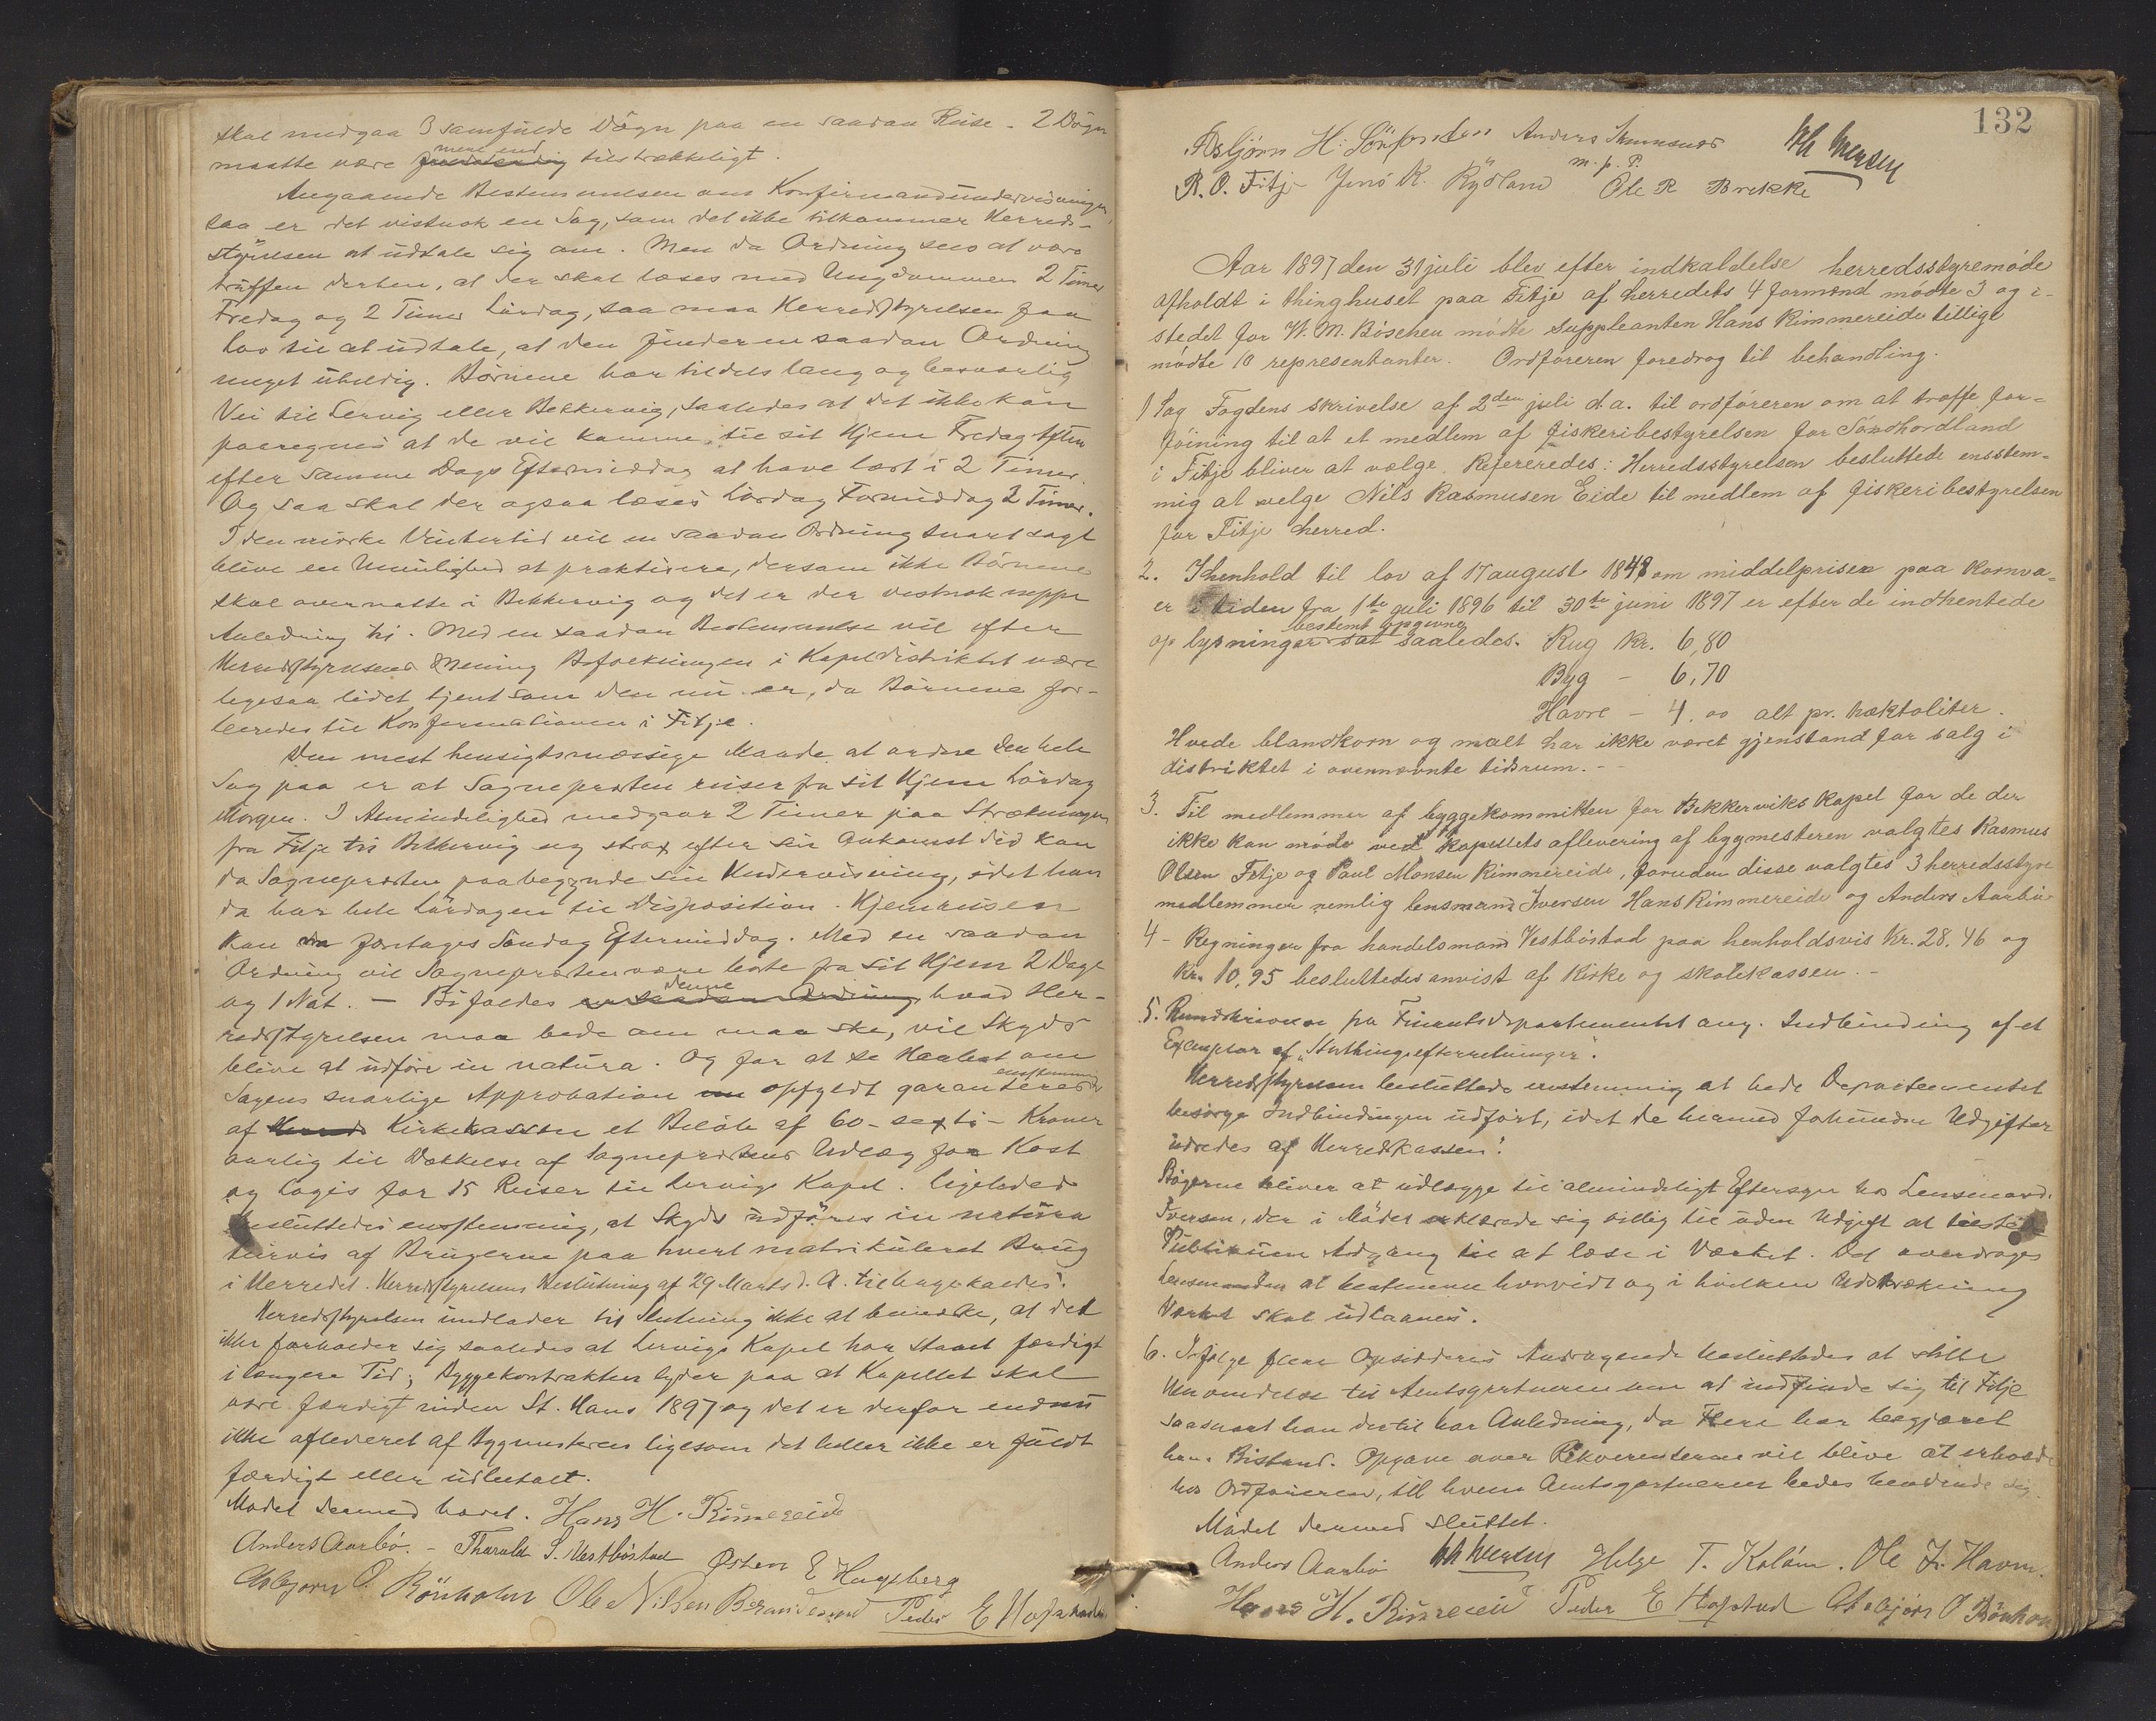 skal medgaa 3 samfulde Dögn paa en saadan Reise. 2 Dögn
maatte være mere end tilstrækkeligt.
Angaaende Bestemmelsen om Konfirmandundervisningen,
saa er det vistnok en Sag, som det ikke tilkommer Herreds-
styrelsen at udtale sig om. Men da Ordning sees at være
truffen derhen, at der skal læses med Ungdommen 2 Timer
Fredag og 2 Timer Lördag, saa maa Herredsstyrelsen faa
Lov til at udtale, at den finder en saadan Ordning
meget uheldig. Börnene har tildels lang og besværlig
Vei til Lervig eller Bekkervig, saaledes at det ikke kan
paaregnes at de vil komme til sit Hjem Fredag Aften
efter samme Dags Eftermiddag at have læst i 2 Timer.
Og saa skal der ogsaa læses Lördag Formiddag 2 Timer.
I den mörke Vintertid vil en saadan Ordning snart sagt
blive en Umulighed at praktisere, dersom ikke Börnene
skal overnatte i Bekkervig og det er der vistnok neppe
Anledning til. Med en saadan Bestemmelse vil efter
Herredsstyrelsens Mening Befolkningen i Kapeldistriktet være
ligesaa lidet tjent som den nu er, da Börnene for-
beredes til Konfirmationen i Fitje.
Den mest hensigtsmæssige Maade at ordne den hele
Sag paa er at Sognepresten reiser fra sit Hjem Lördag
Morgen. I Almindelighed medgaar 2 Timer paa Strækningen
fra Fitje til Bekkervig og strax efter sin Ankomst did kan
da Sognepresten paabegynde sin Undervisning, idet han
da har hele Lördagen til Disposition. Hjemreisen
kan da foretages Söndag Eftermiddag. Med en saadan
Ordning vil Sognepresten være borte fra sit Hjem 2 Dage
og 1 Nat. — Bifaldes denne en saadan Ordning, hvad Her-
redsstyrelsen maa bede om maa ske, vil Skyds
blive at udföre in natura. Og for at se Haabet om
Sagens snarlige Approbation opfyldt garanteredes enstemmig
af Kirkekassen et Belöb af 60 - sexti - Kroner
aarlig til Dækkelse af Sogneprestens Udlæg for Kost
og Logis for 15 Reiser til Lervigs Kapel. Ligeledes
besluttedes enstemmig, at Skyds udföres in natura
turvis af Brugerne paa hvert matrikuleret Brug
i Herredet. Herredsstyrelsens Beslutning af 29 Marts d. A. tilbagekaldes.
Herredsstyrelsen undlader til Slutning ikke at bemærke, at det
ikke forholder sig saaledes at Lervigs Kapel har staaet færdigt
i længere Tid; Byggekontrakten lyder paa at Kapellet skal
være færdigt inden St. Hans 1897 og det er derfor endnu
ikke afleveret af Bygmesteren ligesom det heller ikke er fuldt
færdigt eller udbetalt.
Mödet dermed hævet. Hans H. Rimereide
Anders Aarbö. - Tharald S. Vestböstad Østen E Hageberg
Asbjørn O. Rönholm Ole Nilsen Brandesund Peder E Hofstad
132
Asbjörn H. Anders
m. p. P.
R. O. Fitje Jens R. Rydland Ole R Brekke
Aar 1897 den 31 juli blev efter indkaldelse herredsstyremöde
afholdt i thinghuset paa Fitje af herredets 4 formænd mödte 3 og i-
stedet for W. M. Böschen mödte Suppleanten Hans Rimmereide tillige
mödte 10 representanter. Ordföreren foredrog til behandling.
1 Sag Fogdens skrivelse af 2den juli d.a. til ordföreren om at træffe for-
föining til at et medlem af fiskeribestyrelsen for Söndhordland
i Fitje bliver at vælge. Refereredes: Herredsstyrelsen besluttede enstem-
mig at velge Nils Rasmusen Eide til medlem af fiskeribestyrelsen
for Fitje herred.
2. I henhold til lov af 17 august 1848 om middelprisen paa kornva-
er i tiden fra 1te juli 1896 til 30te juni 1897 er efter de indhentede
bestemt opgivne
oplysninger sat saaledes. Rug Kr. 6,80
Byg - 6,70
Havre - 4.00 alt pr. hektoliter.
Hvede blandkorn og malt har ikke været gjenstand for salg i
distriktet i ovennævnte tidsrum. -
3. Til medlemmer af byggekommitten for Bekkerviks Kapel for de der
ikke kan möde ved Kapellets aflevering af bygmesteren valgtes Rasmus
Olsen Fitje og Poul Monsen Rimmereide, foruden disse valgtes 3 herredsstyre
medlemmer nemlig lensmand Iversen Hans Rimmereide og Anders Aarbö
4 - Regninger fra handelsmand Vestböstad paa henholdsvis Kr. 28.46 og
Kr. 10,95 besluttedes anvist af Kirke og skolekassen. -
5. Rundskrivelse fra Finantsdepartementet ang. Indbinding af et
Exemplar af "Storthingsefterretninger".
Herredsstyrelsen besluttede enstemmig at bede Departementet
besörge Indbindingen udfört, idet de hermed forbundne Udgifter
udredes af Herredskassen.
Bögerne bliver at udlægge til almindeligt Eftersyn hos Lensmand
Iversen, der i Mödet erklærede sig villig til uden Udgift at tilstede
Publikum Adgang til at læse i Værket. Det overdrages
Lensmanden at bestemme hvorvidt og i hvilken Udstrækning
Værket skal udlaanes.
6. Ifölge flere Opsidderes Andragende besluttedes at stille
Henvendelse til Amtsgartneren om at indfinde sig til Fitje
saasnart han dertil har Anledning, da Flere har begjæret
hans Bistand. Opgave over Rekvirenterne vil blive at erholde
hos Ordföreren, til hvem Amtsgartneren bedes henvende sig.
Mödet dermed sluttet.
Anders Aarbö Helge T. Koløen. Ole Havn.
Hans H. Rimereid Peder E Hofstad Asbjörn O Rönholm